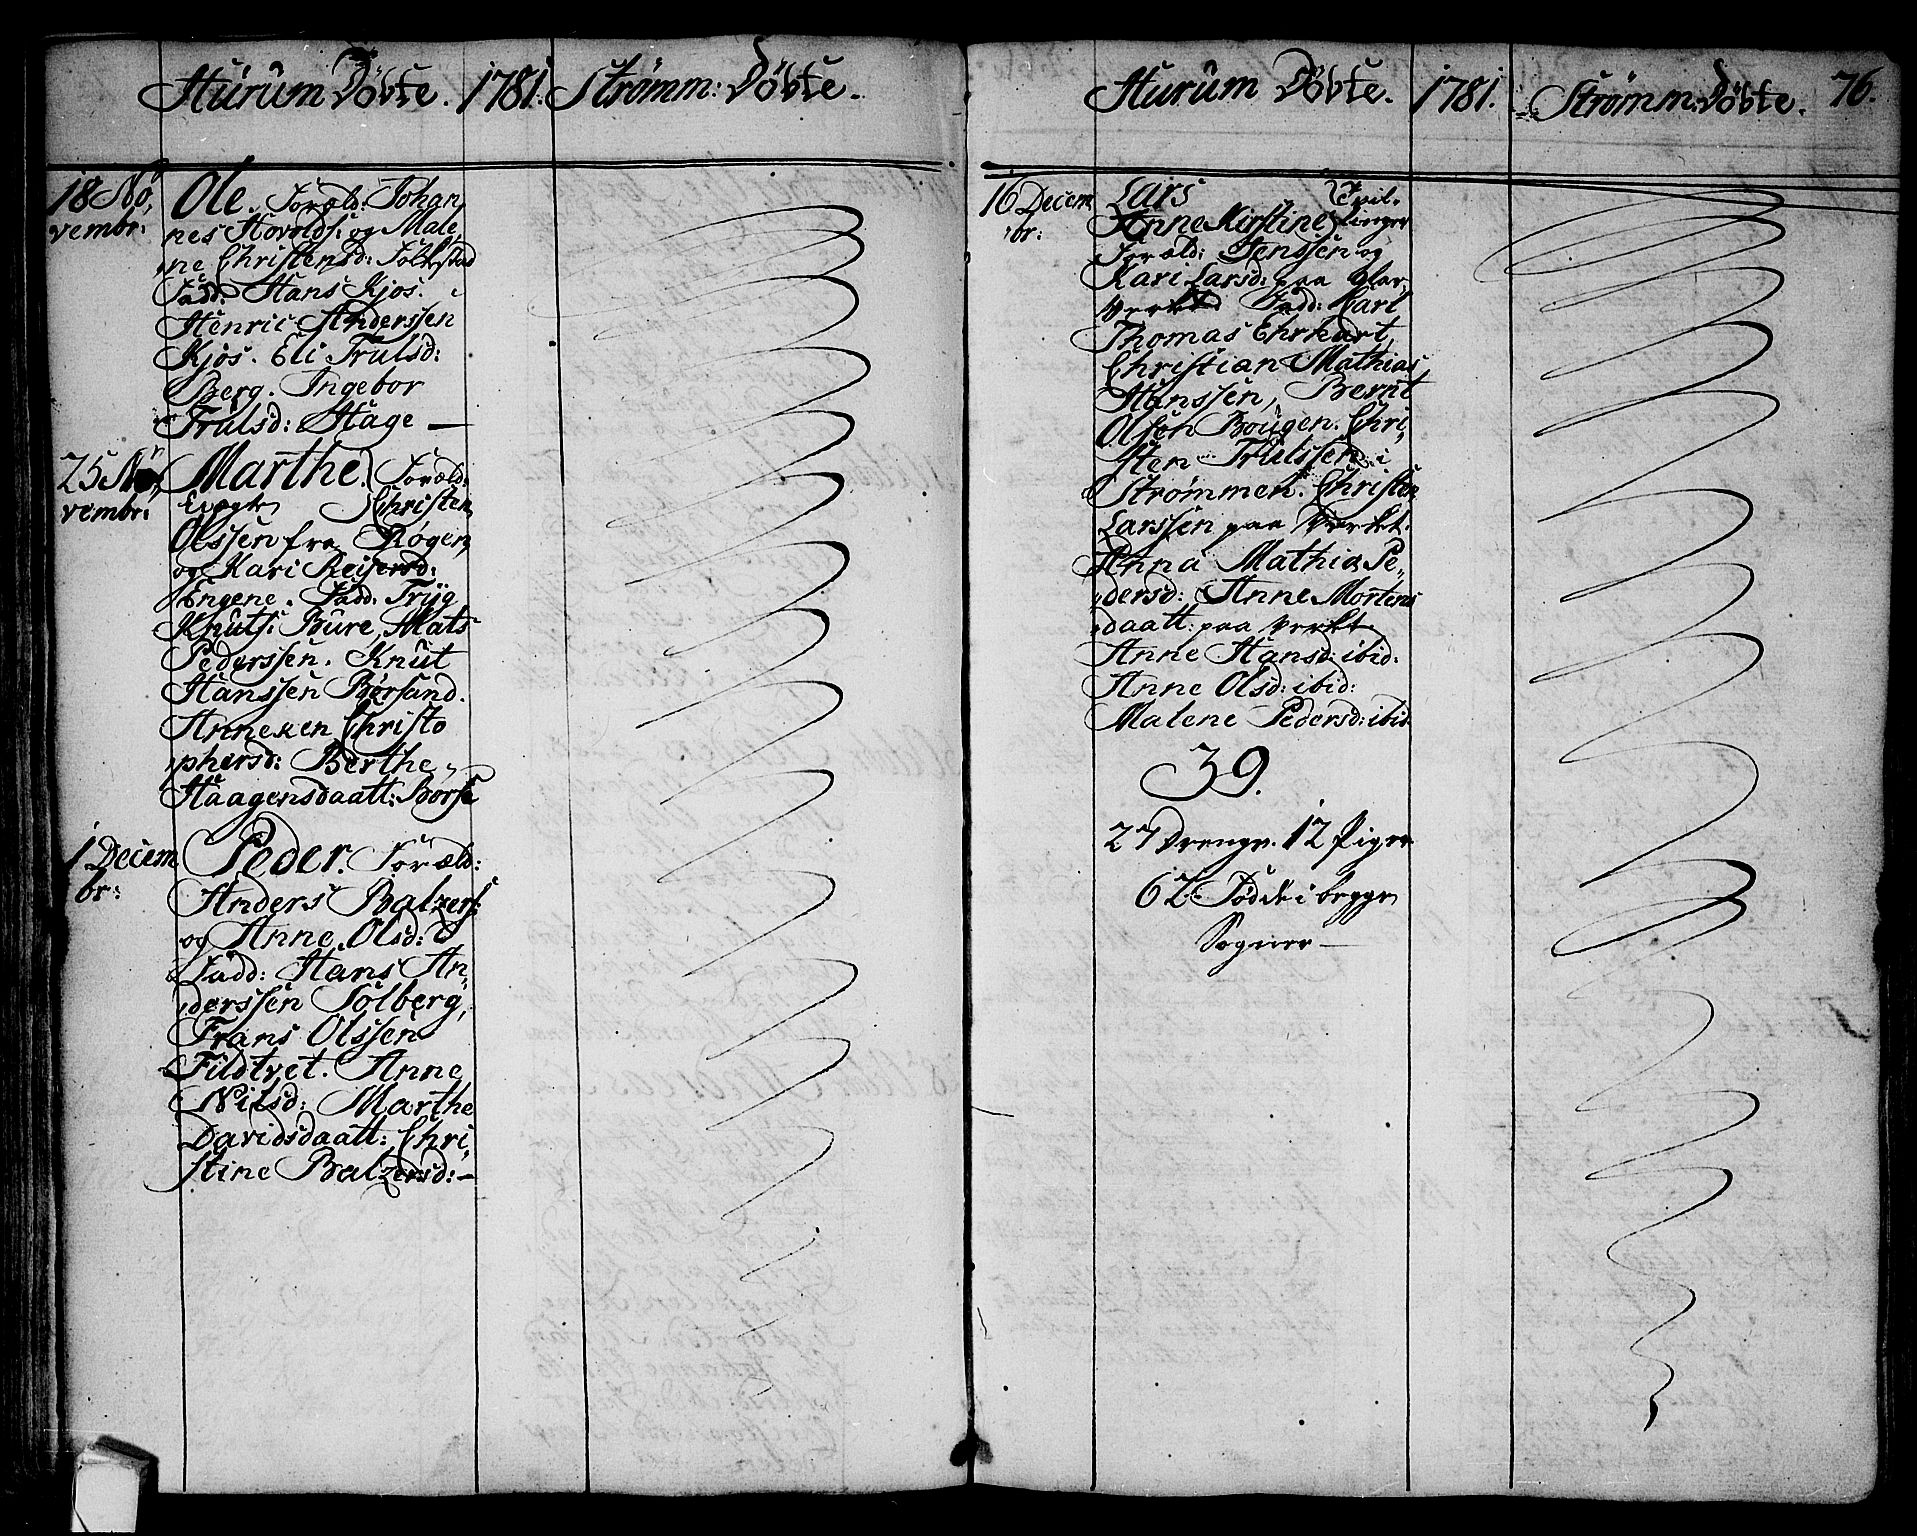 Hurum Döbte. 1781. Strømm: Döbte.
18 No,
vembr:
Ole. Foræld: Johan,
nes Hovolds: og Male,
ne Christensd: Tolvstad
Fadd: Hans Kjos.
Henric Anderssen
Kjos. Eli Trulsd:
Berg. Ingebor
Trulsd: Hage —
25 No,
vembr:
Marthe. Foræld:
Uægte Christen
Olssen fra Røgen,
og Kari Reiersd:
Engene. Fadd: Tryg
Knuts: Bure, Mats
Pederssen. Knut
Hanssen Børsand.
Anneken Christo
phersd: Berthe
Haagensdaatt: Børse
1 Decem
br:
Peder. Foræld:
Anders Balzers:
og Anne Olsd:
Fadd: Hans An,
derssen Solberg,
Frans Olssen
Fildtvet. Anne
Nilsd: Marthe
Davidsdaatt: Chri,
stine Balzersd: —
Hurum Döbte. 1781. Strømm: Döbte. 76.
16 Decem
br:
Lars Tvil-
Anne Kirstine linger
Foræld: Jenssen og
Kari Larsd: paa Glar,
verket Fadd: Karl
Thomas Ehrhart,
Christian Mathias
Hanssen, Bernt
Olssen Bougen. Chri,
sten Trulssen i
Strømmen. Christen
Larssen paa Verket.
Anna Mathia Pe,
dersd: Anne Mortens
daatt: paa Verket
Anne Hansd: ibid:
Anne Olsd: ibid:
Malene Pedersd: ibid
39.
27 Drenge. 12 Piger
62 Födde i begge
Sogner —